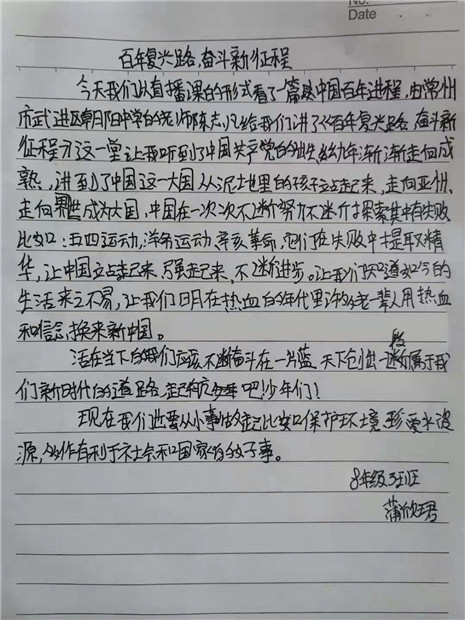 No.
Date
百年复兴路,奋斗新征程
今天我们以直播课的形式看了一篇谈中国百年进程,由常州
市武进区卓阳中学的老师陈志从给我们讲了《百年复兴路 奋斗新
征程》这一堂让我听到了中国共产党的从幼年渐渐走向成
熟,讲到了中国这一大国从泥土地里的孩子立起来,走向亚州,
走向世界成为大国,中国在一次次不断努力不断探索其中有失败
比如:五四运动,洋务运动,辛亥革命,他们在失败中提取精
华,让中国立起来,强起来,不断进步。让我们知道如今的
生活来之不易,让我们明在热血的年代里许多老一辈人用热血
和信念,换来新中国。
活在当下的我们应该不断奋斗在一片蓝天下创出一段属于我
们新时代的道路,起航吧!少年们!
现在我们还要从小事做起比如保护环境,珍爱水资
源,多作有利于社会和国家的好事。
8年级3班
蒲欣珺